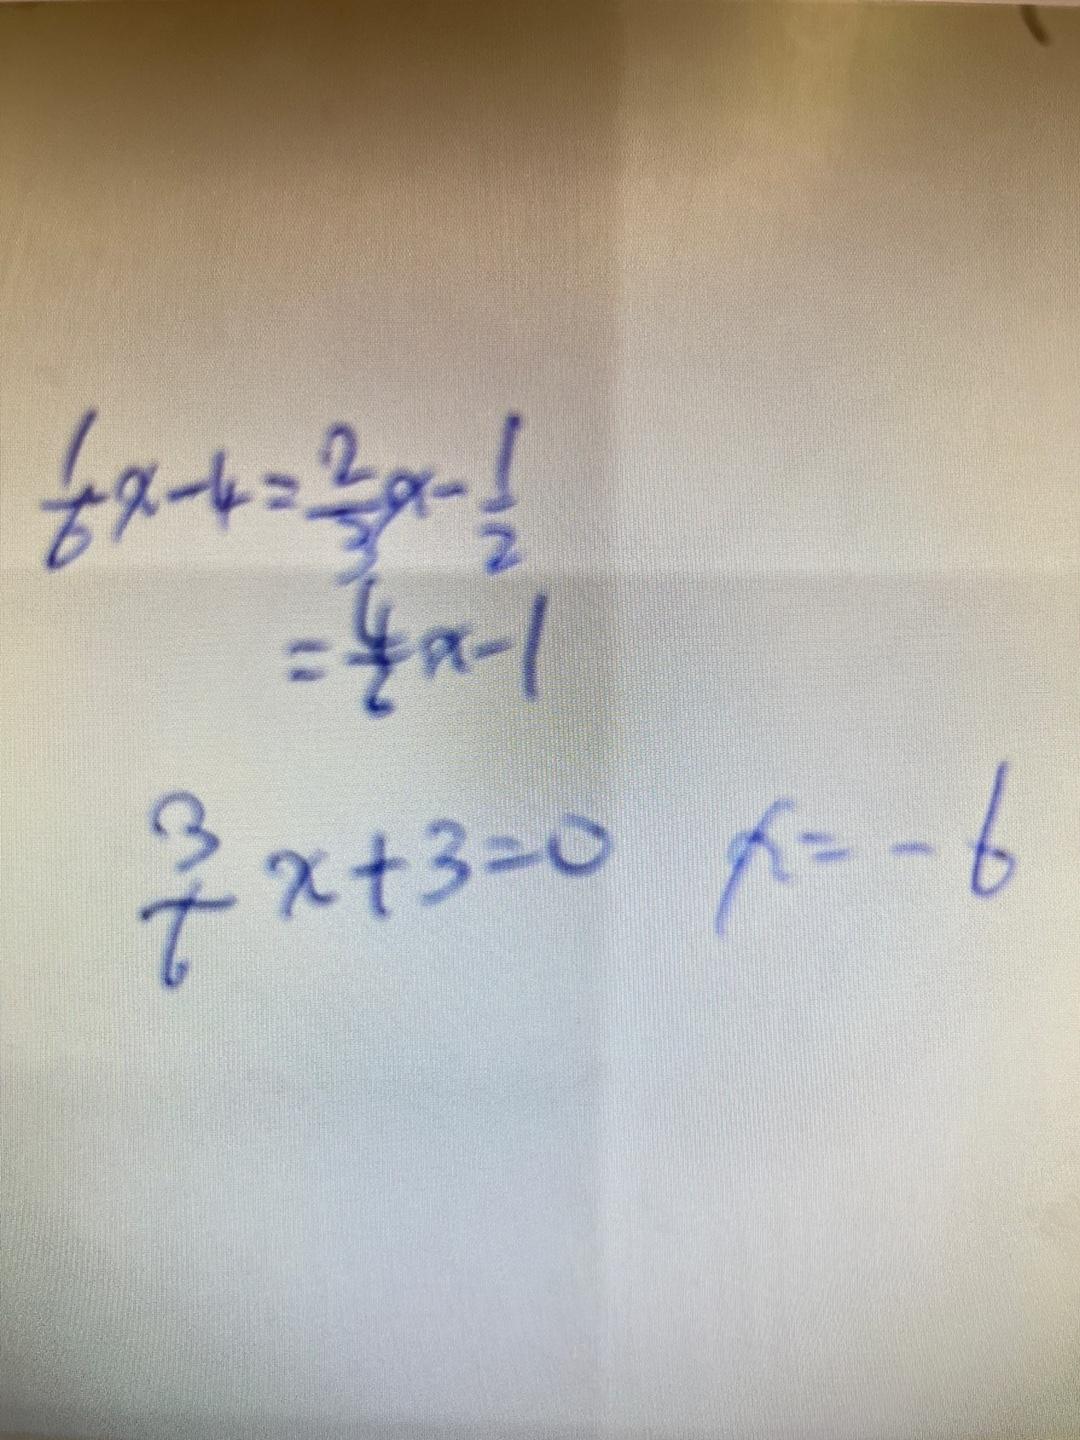 1/6 x - 4 = 2/3 x - 1/2
= 4/6 x - 1
3/6 x + 3 = 0 x = - 6